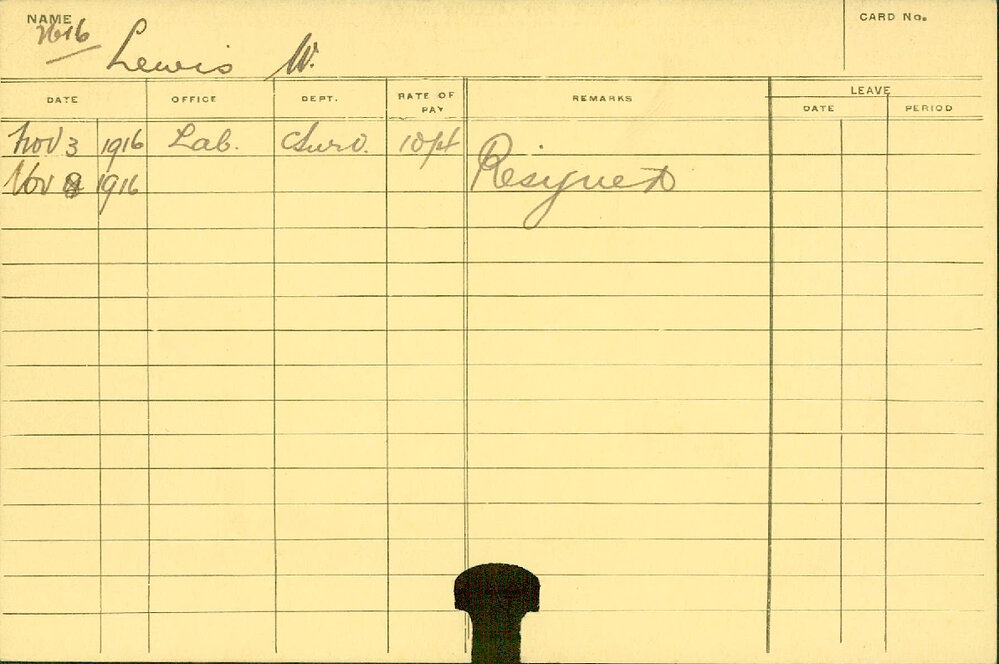 NAME
7616
Lewis W.
CARD No.
DATE OFFICE DEPT. RATE OF PAY REMARKS LEAVE
DATE PERIOD
Nov 3 1916 Lab. Surv. 10/4
Nov 8 1916 Resigned